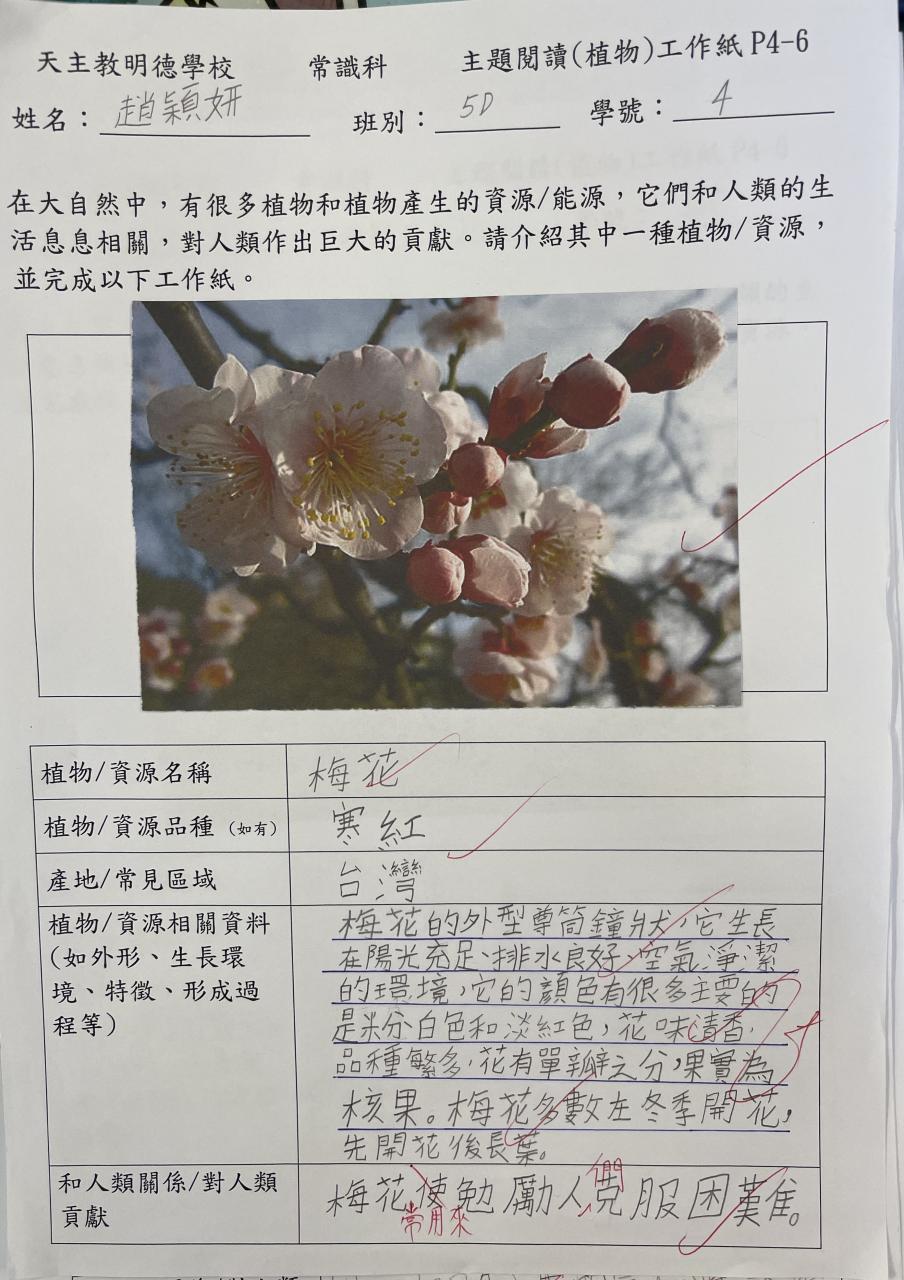 天主教明德學校 常識科 主題閱讀(植物)工作紙 P4-6
姓名：趙穎妍 班別：5D 學號：4
在大自然中，有很多植物和植物產生的資源/能源，它們和人類的生
活息息相關，對人類作出巨大的貢獻。請介紹其中一種植物/資源，
並完成以下工作紙。
植物/資源名稱 梅花
植物/資源品種 (如有) 寒紅
產地/常見區域 台灣
植物/資源相關資料
(如外形、生長環
境、特徵、形成過
程等)
梅花的外型尊筒鐘狀，它生長
在陽光充足、排水良好、空氣淨潔
的環境，它的顏色有很多主要的
是粉白色和淡紅色，花味清香，
品種繁多，花有單瓣之分，果實為
核果。梅花多數在冬季開花，
先開花後長葉。
和人類關係/對人類
貢獻
梅花使勉勵人克服困難。
們
常用來